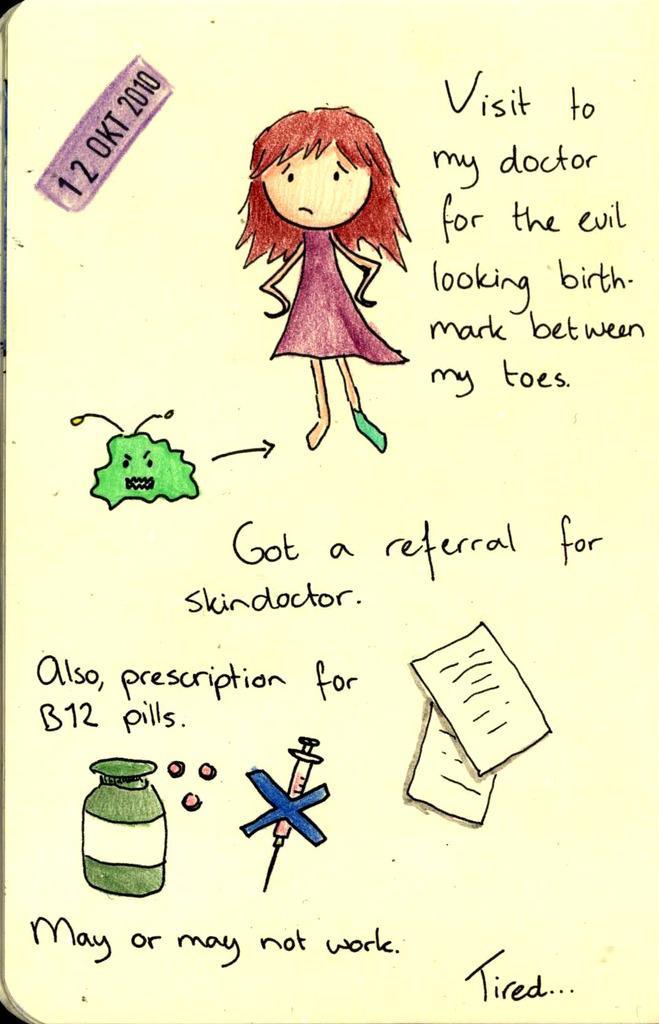 12 OKT 2010
Visit to
my doctor
for the evil
looking birth-
mark between
my toes.
Got a referral for
skindoctor.
Also, prescription for
B12 pills.
May or may not work.
Tired...